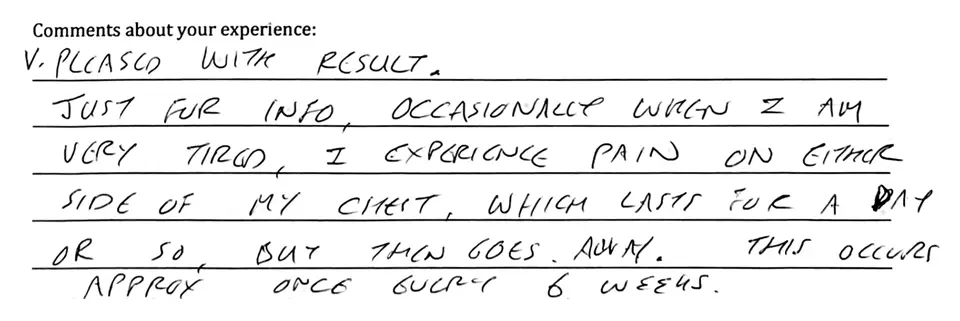 Comments about your experience:
V. PLEASED WITH RESULT.
JUST FOR INFO, OCCASIONALLY WHEN I AM
VERY TIRED, I EXPERIENCE PAIN ON EITHER
SIDE OF MY CHEST, WHICH LASTS FOR A DAY
OR SO, BUT THEN GOES. AWAY. THIS OCCURS
APPROX ONCE EVERY 6 WEEKS.